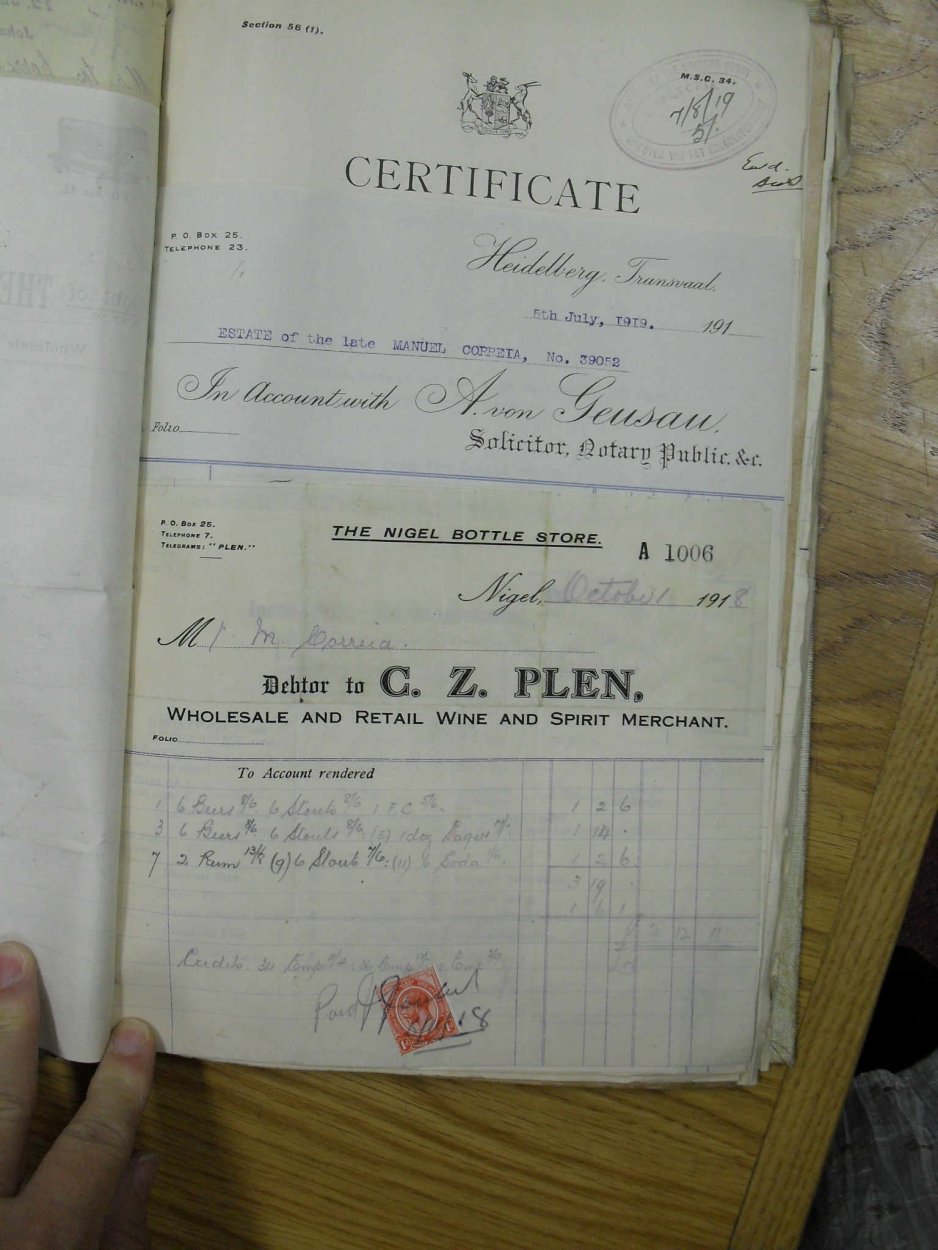 Section 56 (1).
M.S.C. 34.
7/8/19
5/.
CERTIFICATE
P. O. Box 25.
TELEPHONE 23.
Heidelberg, Transvaal,
5th July, 1919. 191
ESTATE of the late MANUEL CORREIA, No. 39052
In Account with A. von Geusau,
Folio
Solicitor, Notary Public, &c.
P. O. Box 25.
TELEPHONE 7.
TELEGRAMS: "PLEN."
THE NIGEL BOTTLE STORE.
A 1006
Nigel, October 1918
Mr M. Correia.
Debtor to C. Z. PLEN,
WHOLESALE AND RETAIL WINE AND SPIRIT MERCHANT.
FOLIO
To Account rendered
1 6 Beers 8/6 6 Stout 8/6 1 F.C 5/6 1 2 6
3 6 Beers 8/6 6 Stouts 8/6 (5) 1 doz Lager 17/. 1 14 .
7 2 Rum (9) 6 Stout 7/6 (11) 6 Soda 1/6. 1 2 6
3 19 .
1 6 1
Credits. Emp Emp Emp
Paid